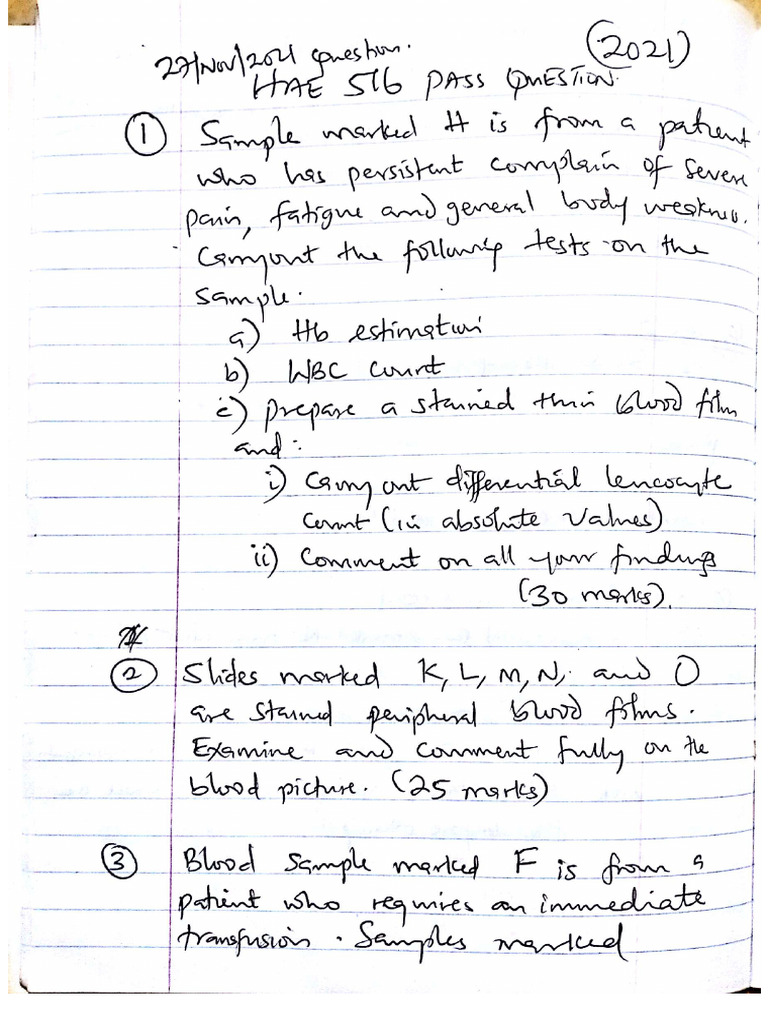 (2021)
27/Nov/2021 question.
HAE 516 PASS QUESTION.
① Sample marked H is from a patient
who has persistent complain of severe
pain, fatigue and general body weakness.
Carryout the following tests on the
sample.
a) Hb estimation
b) WBC Count
c) prepare a stained thin blood film
and:
i) Carry out differential leucocyte
count (in absolute values)
ii) Comment on all your findings
(30 marks).
② Slides marked K, L, M, N, and O
are stained peripheral blood films.
Examine and comment fully on the
blood picture. (25 marks)
③ Blood Sample marked F is from a
patient who requires an immediate
transfusion. Samples marked